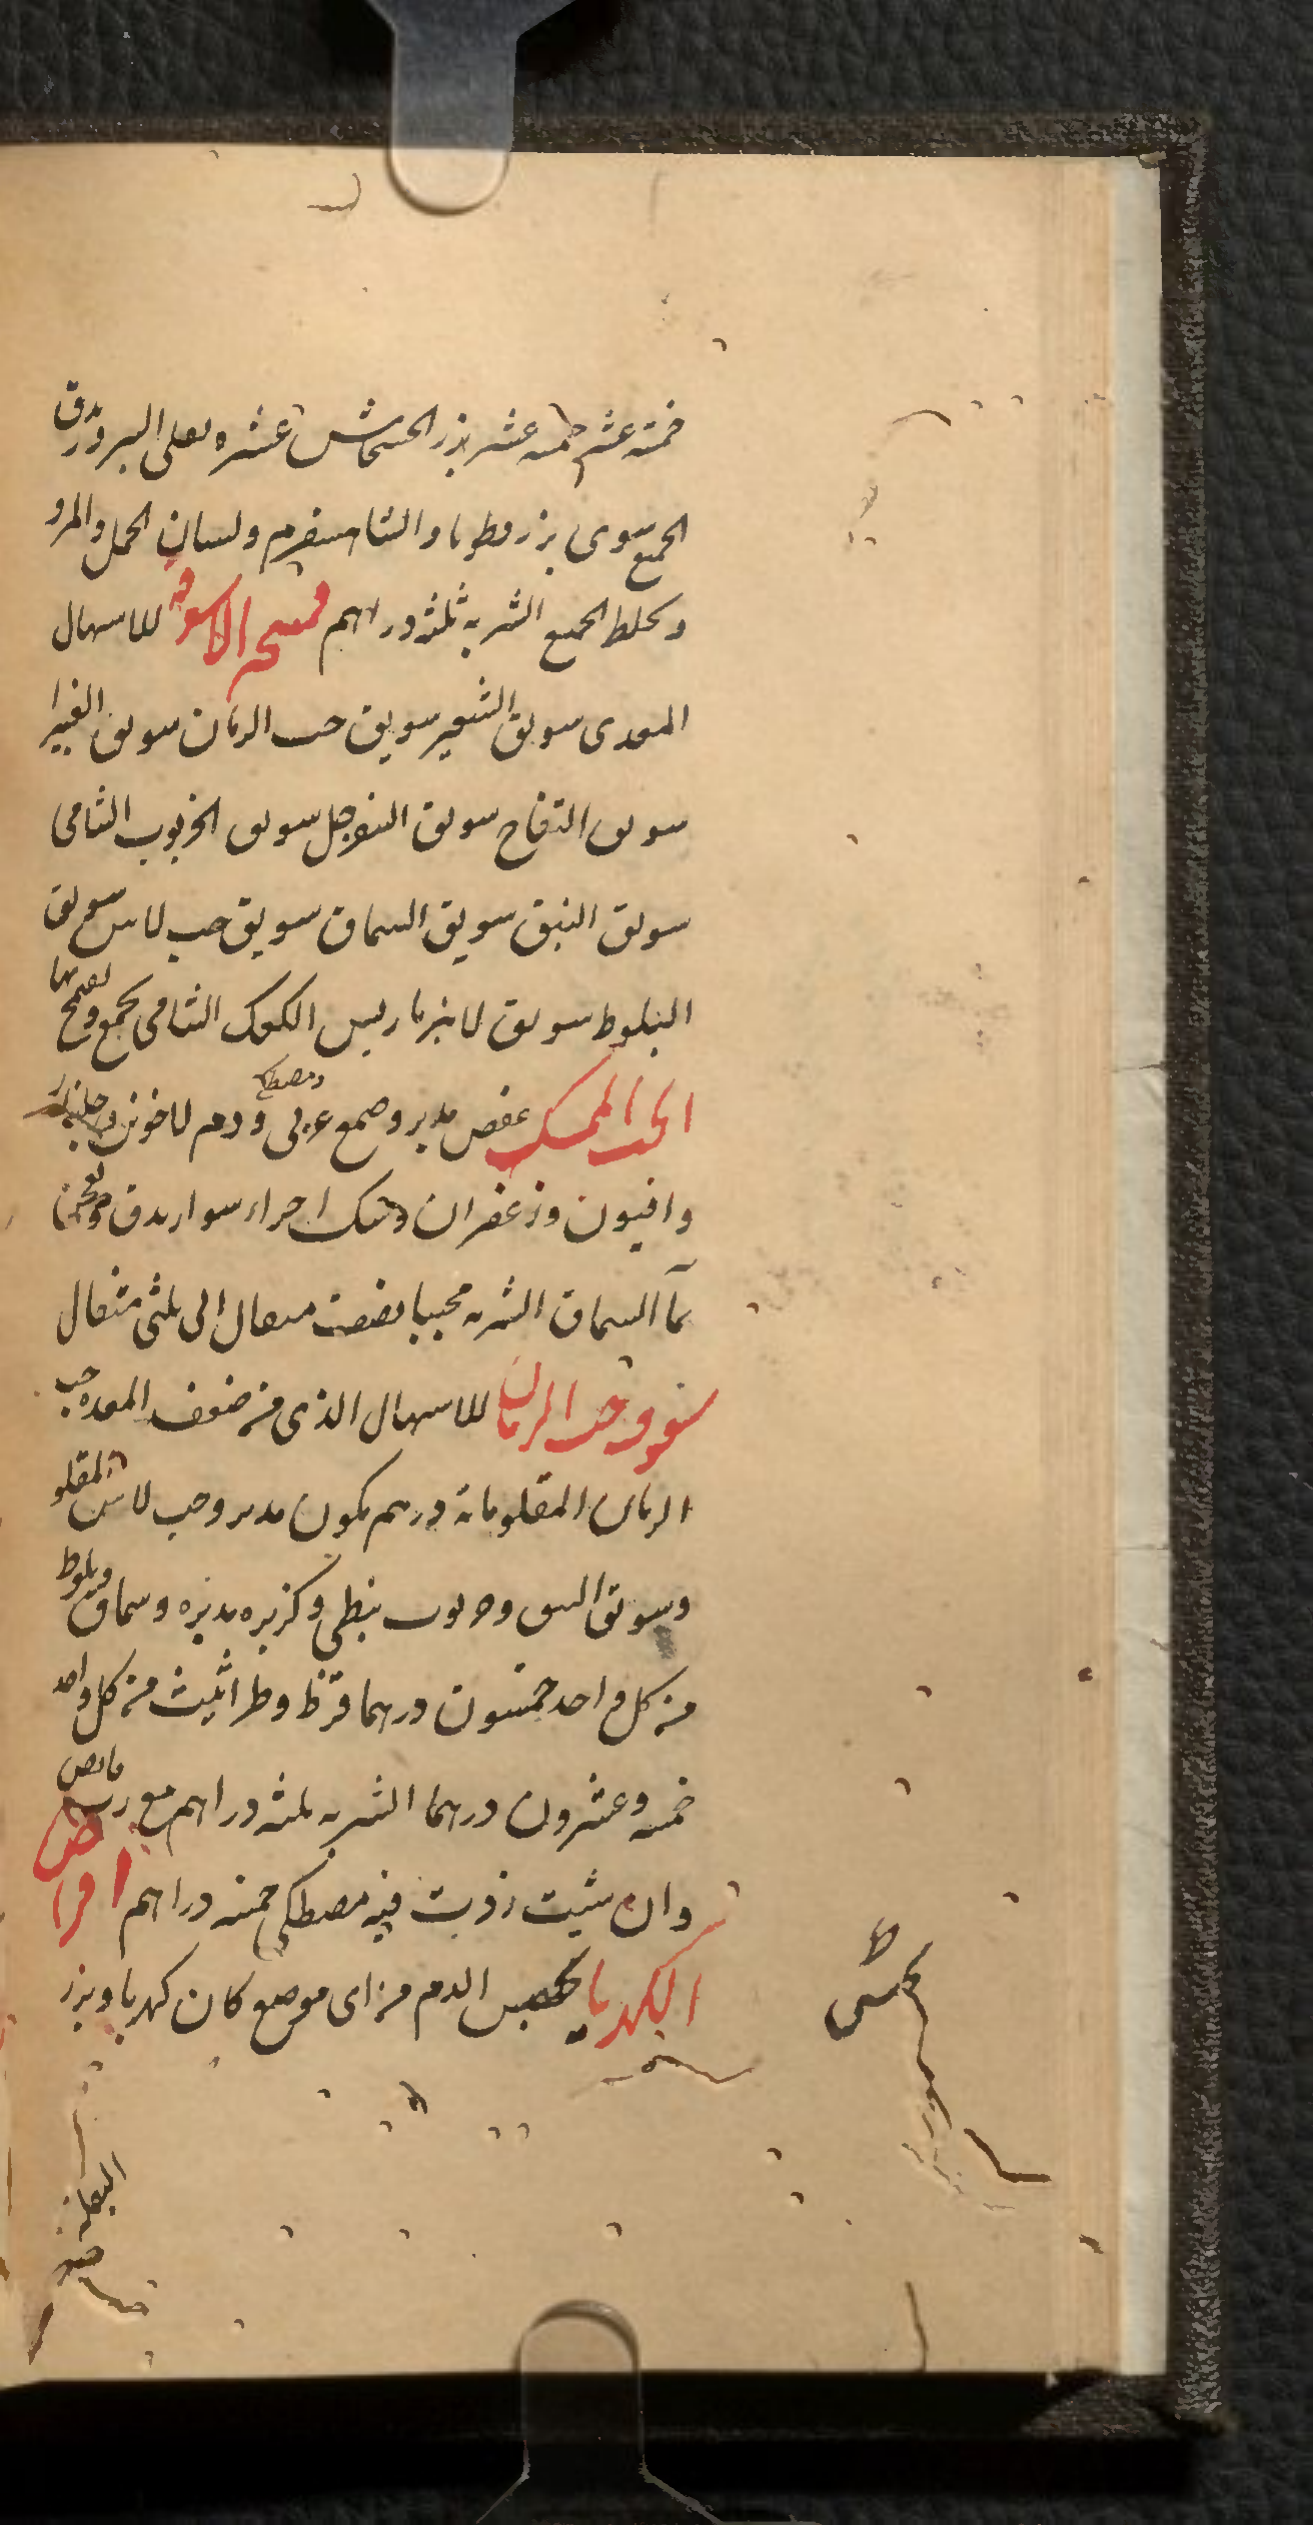 خمسة عشر خمسة عشر بزر الخشخاش عشرة يعلى البزر ويدق
الجميع سوى بزر قطونا والشاهسفرم ولسان الحمل والمرو
ويخلط الجميع الشربة ثلثة دراهم نسخة الاسوقه للاسهال
المعدى سويق الشعير سويق حب الرمان سويق الغبيرا
سويق التفاح سويق السفرجل سويق الخرنوب الشامى
سويق النبق سويق السماق سويق حب لاس سويق
البلوط سويق لانبرباريس الكعك الشامى يجمع
الحب الممسك عفص مدبر وصمغ عربى ومصطكى ودم لاخوين
وافيون وزعفران ومسك اجزاء سوا يدق ويعجن
بمآ السماق الشربة محببا نصف مثقال الى ثلثى مثقال
سفوف حب الرمان للاسهال الذى من ضعف المعده حب
الرمان المقلو مائة درهم كمون مدبر وحب لاس المقلو
وسويق النبق وخرنوب نبطى وكزبره مدبره وسماق وبلوط
من كل واحد خمسون درهما قرظ وطراثيث من كل واحد
خمسة وعشرون درهما الشربة ثلثة دراهم مع رب
وان شيت زدت فيه مصطكى خمسة دراهم اقراص
الكهربا يحبس الدم من اى موضع كان كهربا وبزر
البقله